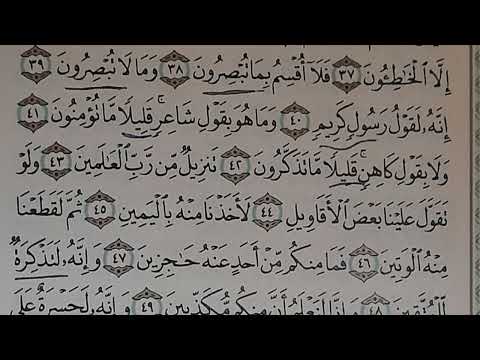 إِلَّا ٱلْخَٰطِـُٔونَ ٣٧ فَلَآ أُقْسِمُ بِمَا تُبْصِرُونَ ٣٨ وَمَا لَا تُبْصِرُونَ ٣٩
إِنَّهُۥ لَقَوْلُ رَسُولٍ كَرِيمٍ ٤٠ وَمَا هُوَ بِقَوْلِ شَاعِرٍ ۚ قَلِيلًا مَّا تُؤْمِنُونَ ٤١
وَلَا بِقَوْلِ كَاهِنٍ ۚ قَلِيلًا مَّا تَذَكَّرُونَ ٤٢ تَنزِيلٌ مِّن رَّبِّ ٱلْعَٰلَمِينَ ٤٣ وَلَوْ
تَقَوَّلَ عَلَيْنَا بَعْضَ ٱلْأَقَاوِيلِ ٤٤ لَأَخَذْنَا مِنْهُ بِٱلْيَمِينِ ٤٥ ثُمَّ لَقَطَعْنَا
مِنْهُ ٱلْوَتِينَ ٤٦ فَمَا مِنكُم مِّنْ أَحَدٍ عَنْهُ حَٰجِزِينَ ٤٧ وَإِنَّهُۥ لَتَذْكِرَةٌ
لِّلْمُتَّقِينَ ٤٨ وَإِنَّا لَنَعْلَمُ أَنَّ مِنكُم مُّكَذِّبِينَ ٤٩ وَإِنَّهُۥ لَحَسْرَةٌ عَلَى